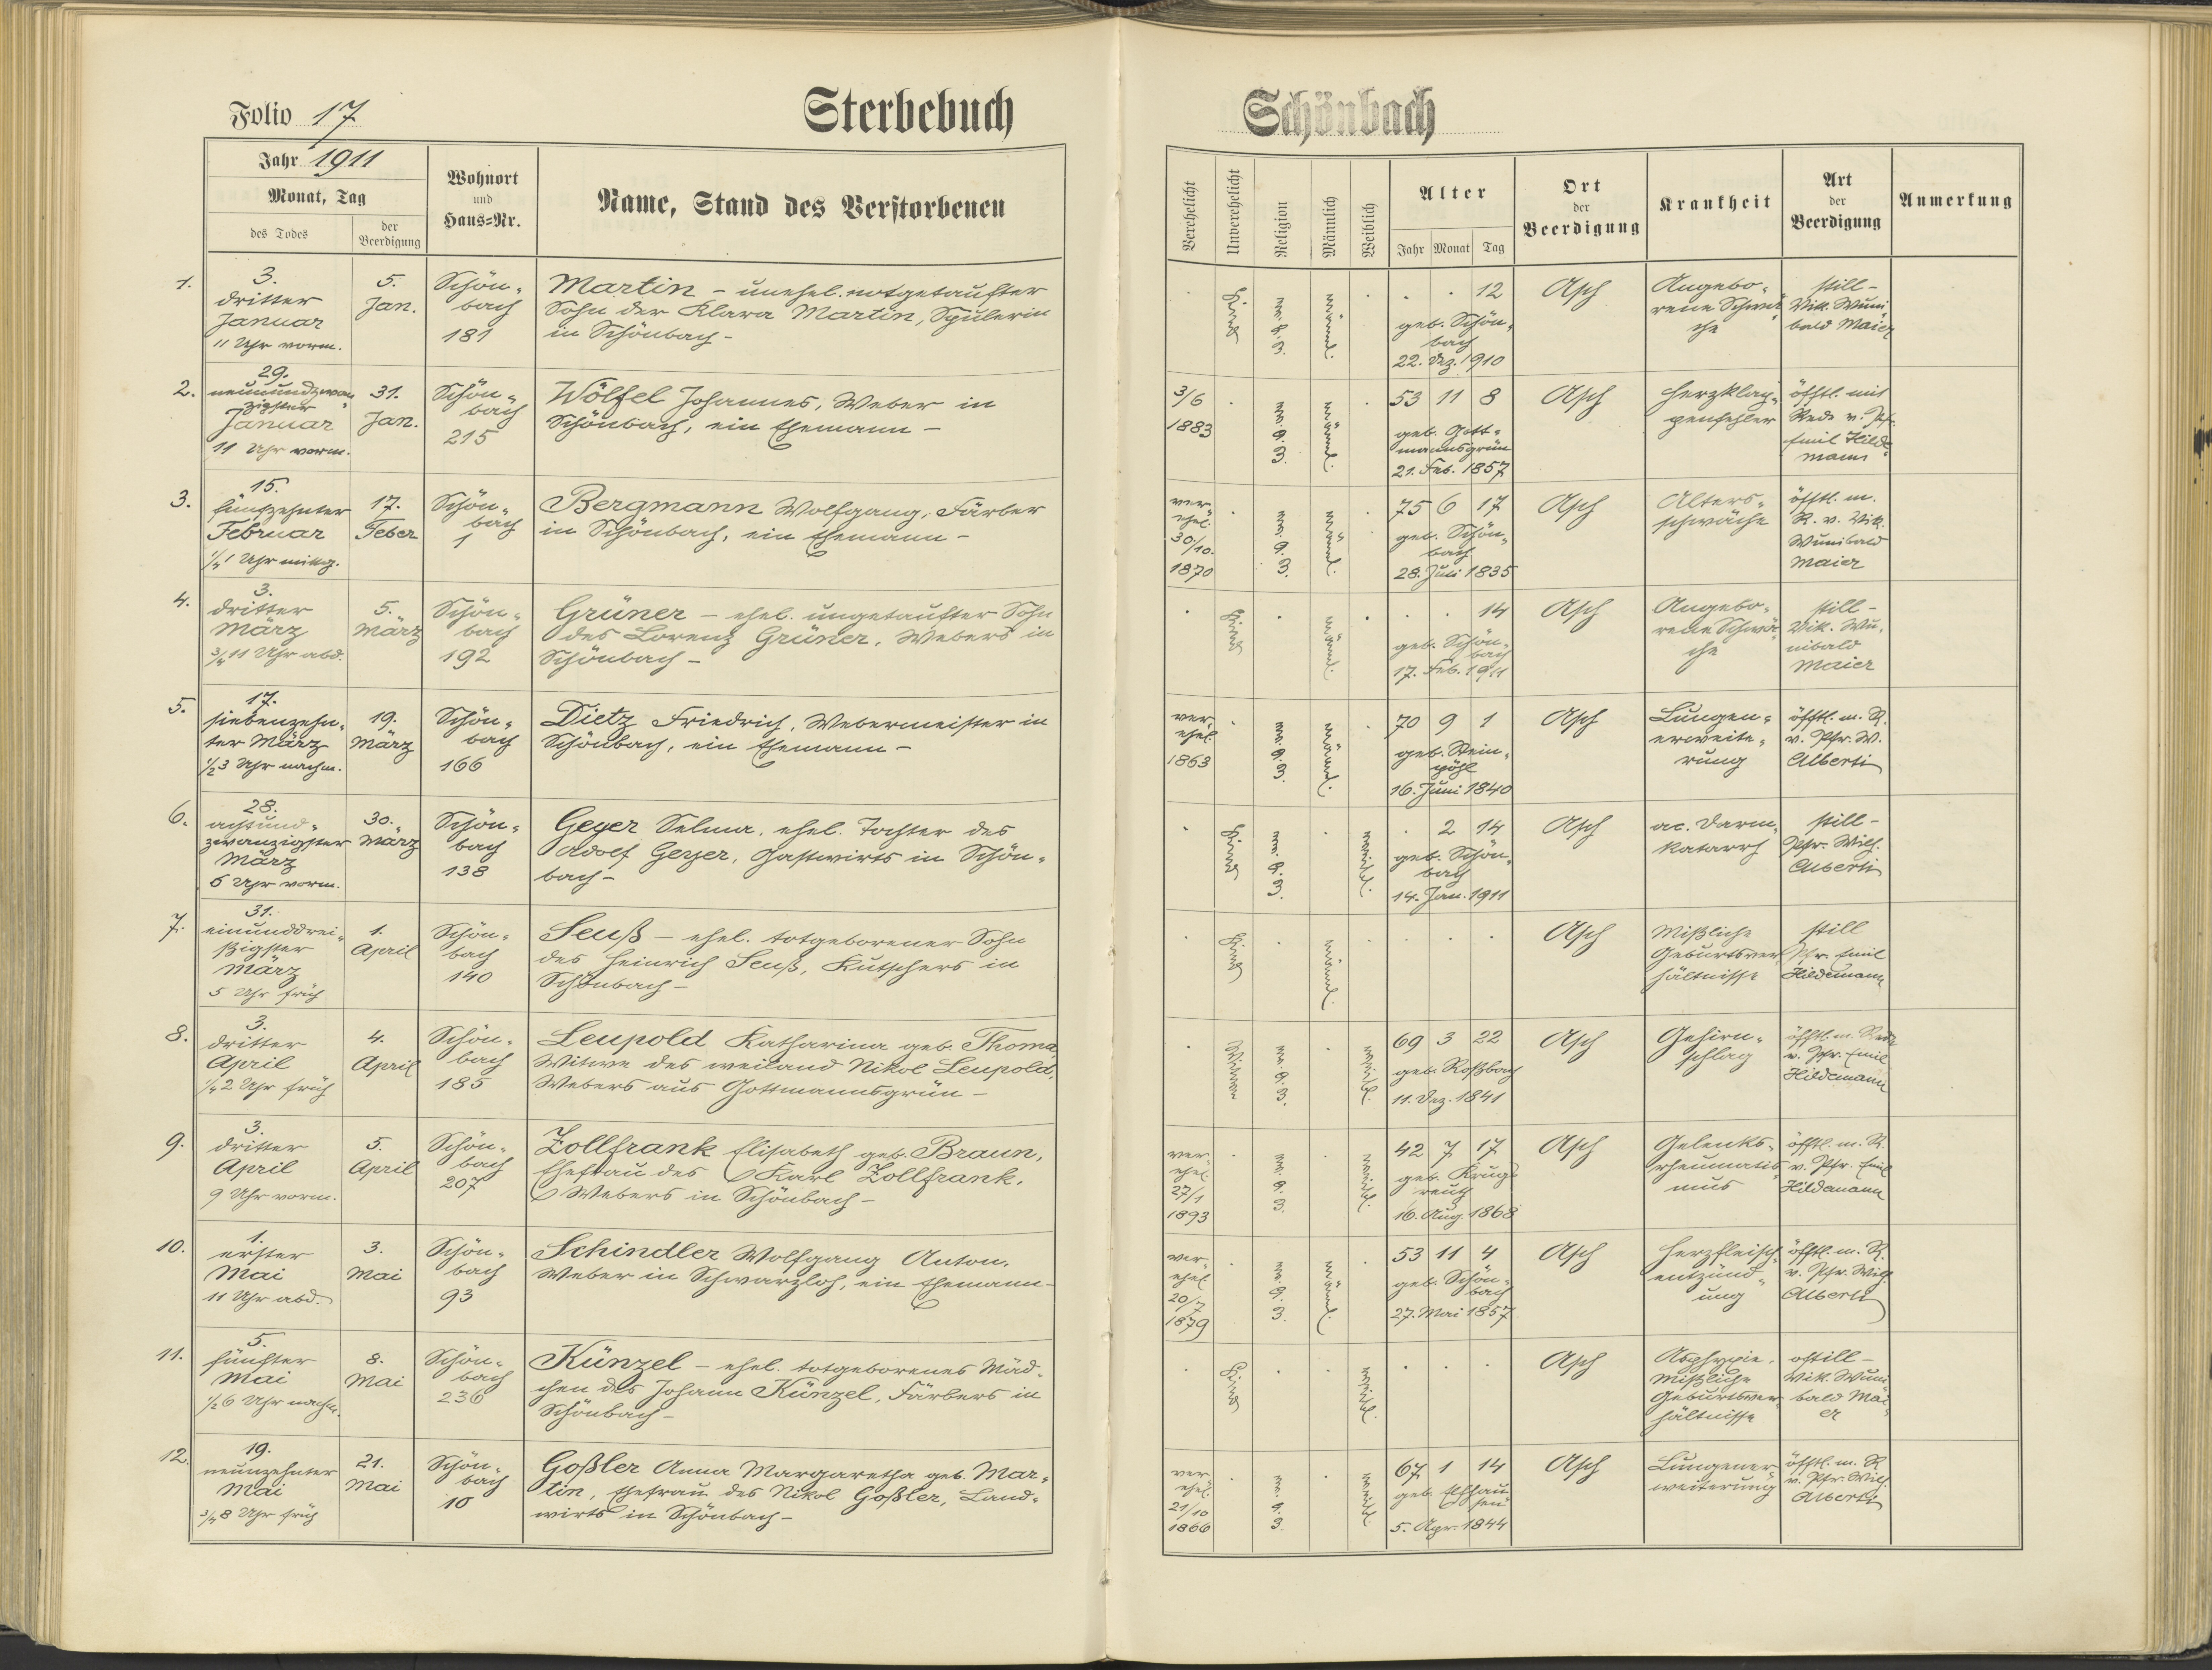 Folio 17
Sterbebuch
Schönbach
Jahr 1911
Monat, Tag
des Todes
der Beerdigung
Wohnort
und
Haus=Nr.
Name, Stand des Verstorbenen
Verehelicht
Unverehelicht
Religion
Männlich
Weiblich
Alter
Jahr Monat Tag
Ort
der
Beerdigung
Krankheit
Art
der
Beerdigung
Anmerkung
1.
3.
dritter
Januar
11 Uhr vorm.
5.
Jan.
Schön-
bach
181
Martin – unehel. notgetaufter
Sohn der Klara Martin, Spulerin
in Schönbach –
Kind
männl.
12
geb. Schön-
bach
22. Dez. 1910
Asch
Angebo-
rene Schwä-
che
still –
Vik. Wuni-
bald Maier
2.
29.
neunundzwan-
zigster
Januar
11 Uhr vorm.
31.
Jan.
Schön-
bach
215
Wölfel Johannes, Weber in
Schönbach, ein Ehemann –
3/6
1883
männl.
53 11 8
geb. Gott-
mannsgrün
21. Feb. 1857
Asch
Herzklap-
penfehler
öfftl. mit
Rede v. Pfr.
Emil Hilde-
mann
3.
15.
fünfzehnter
Februar
1/4 1 Uhr mittg.
17.
Feber
Schön-
bach
1
Bergmann Wolfgang, Färber
in Schönbach, ein Ehemann –
ver-
ehel.
30./10.
1870
männl.
75 6 17
geb. Schön-
bach
28. Juli 1835
Asch
Alters-
schwäche
öfftl. m.
R. v. Vik.
Wunibald
Maier
4.
3.
dritter
März
3/4 11 Uhr abd.
5.
März
Schön-
bach
192
Grüner – ehel. ungetaufter Sohn
des Lorenz Grüner, Webers in
Schönbach –
Kind
männl.
14
geb. Schön-
bach
17. Feb. 1911
Asch
Angebo-
rene Schwä-
che
still –
Vik. Wu-
nibald
Maier
5.
17.
siebenzehn-
ter März
1/2 3 Uhr nachm.
19.
März
Schön-
bach
166
Dietz Friedrich, Webermeister in
Schönbach, ein Ehemann –
ver-
ehel.
1863
männl.
70 9 1
geb. Stein-
pöhl
16. Juni 1840
Asch
Lungen-
erweite-
rung
öfftl. m. R.
v. Pfr. W.
Alberti
6.
28.
achtund-
zwanzigster
März
6 Uhr vorm.
30.
März
Schön-
bach
138
Geyer Selma, ehel. Tochter des
Adolf Geyer, Gastwirts in Schön-
bach –
Kind
weibl.
2 14
geb. Schön-
bach
14. Jan. 1911
Asch
ac. Darm-
katarrh
still –
Pfr. Wilh.
Alberti
7.
31.
einunddrei-
ßigster
März
5 Uhr früh
1.
April
Schön-
bach
140
Seuß – ehel. totgeborener Sohn
des Heinrich Seuß, Kutschers in
Schönbach –
Kind
männl.
Asch
Mißliche
Geburtsver-
hältnisse
still
Pfr. Emil
Hildemann
8.
3.
dritter
April
1/4 2 Uhr früh
4.
April
Schön-
bach
185
Leupold Katharina geb. Thoma,
Witwe des weiland Nikol Leupold,
Webers aus Gottmannsgrün –
Witwe
weibl.
69 3 22
geb. Roßbach
11. Dez. 1841
Asch
Gehirn-
schlag
öfftl. m. Rede
v. Pfr. Emil
Hildemann
9.
3.
dritter
April
9 Uhr vorm.
5.
April
Schön-
bach
207
Zollfrank Elisabeth geb. Braun,
Ehefrau des Karl Zollfrank,
Webers in Schönbach –
ver-
ehel.
27/1
1893
weibl.
42 7 17
geb. Krugs-
reuth
16. Aug. 1868
Asch
Gelenks-
rheumatis-
mus
öfftl. m. R.
v. Pfr. Emil
Hildemann
10.
1.
erster
Mai
11 Uhr abd.
3.
Mai
Schön-
bach
93
Schindler Wolfgang Anton,
Weber in Schwarzloh, ein Ehemann –
ver-
ehel.
20/7
1879
männl.
53 11 4
geb. Schön-
bach
27. Mai 1857
Asch
Herzfleisch-
entzünd-
ung
öfftl. m. R.
v. Pfr. Wilh.
Alberti
11.
5.
fünfter
Mai
1/2 6 Uhr nachm.
8.
Mai
Schön-
bach
236
Künzel – ehel. totgeborenes Mäd-
chen des Johann Künzel, Färbers in
Schönbach –
Kind
weibl.
Asch
Asphyxie,
Mißliche
Geburtsver-
hältnisse
still –
Vik. Wuni-
bald Mai-
er
12.
19.
neunzehnter
Mai
3/4 8 Uhr früh
21.
Mai
Schön-
bach
10
Goßler Anna Margaretha geb. Mar-
tin, Ehefrau des Nikol Goßler, Land-
wirts in Schönbach –
ver-
ehel.
21/10
1866
weibl.
67 1 14
geb.
5. Apr. 1844
Asch
Lungener-
weiterung
öfftl. m. R.
v. Pfr. Wilh.
Alberti